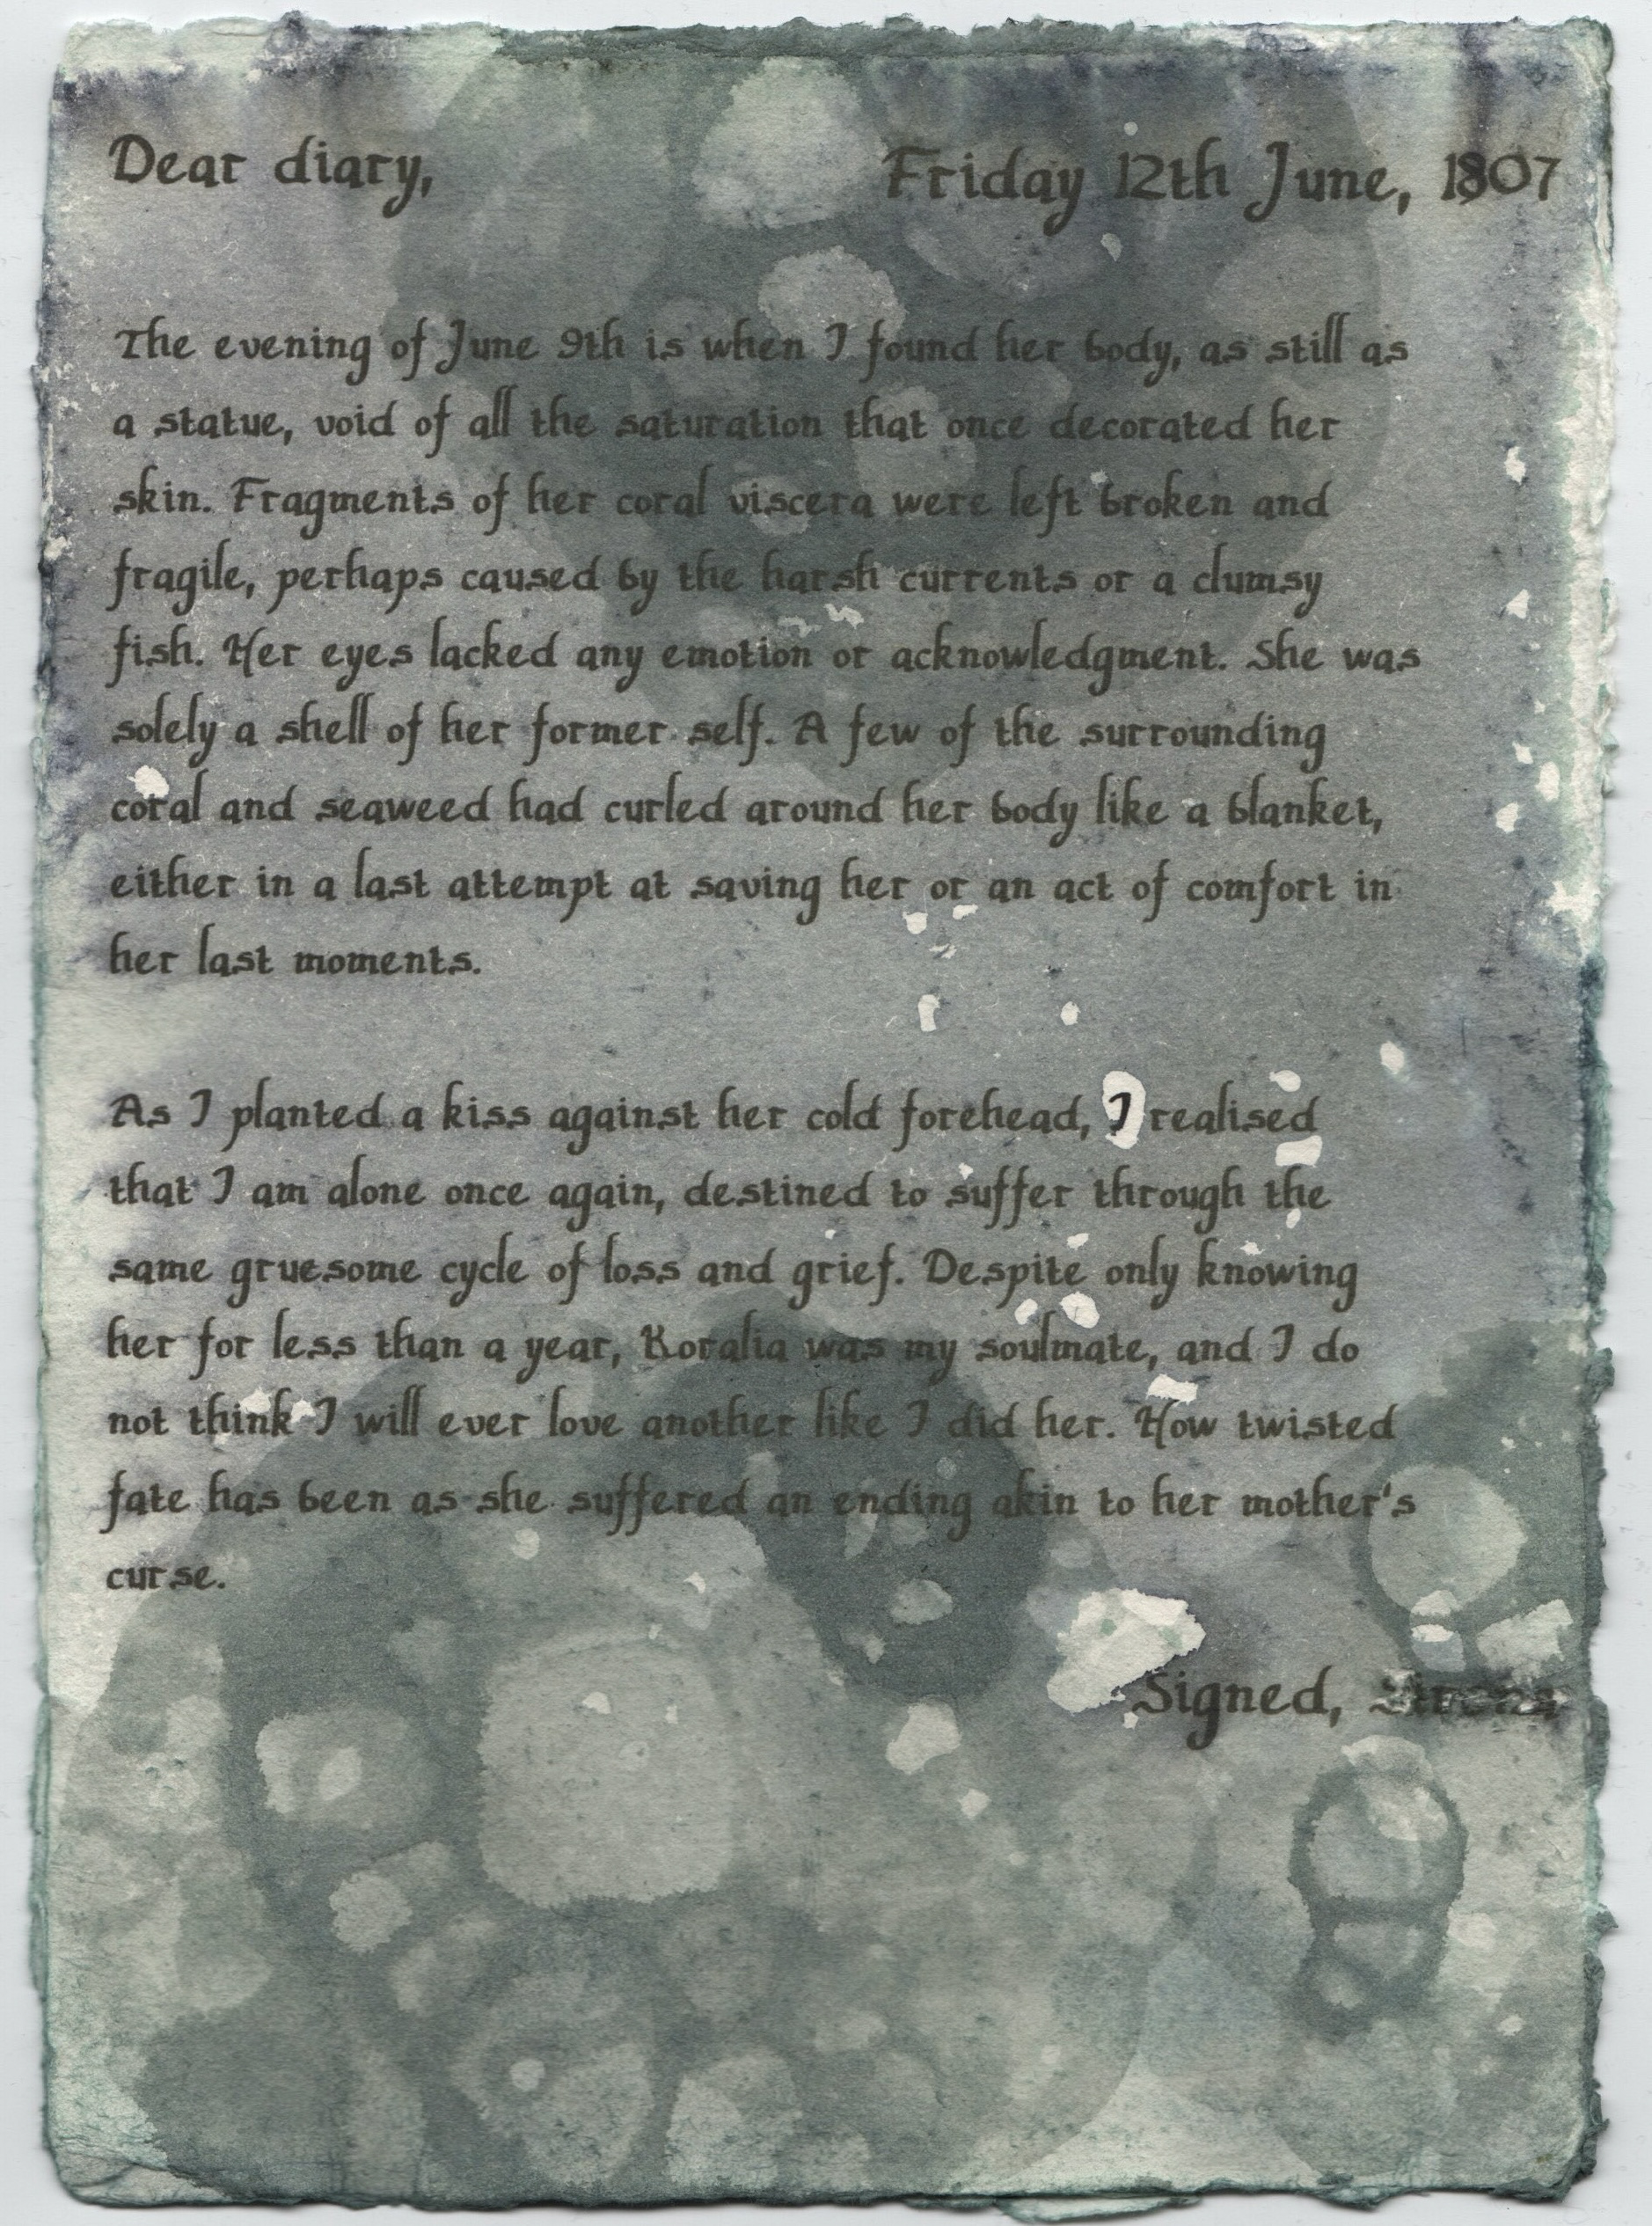 Dear diary,
Friday 12th June, 1807
The evening of June 9th is when I found her body, as still as
a statue, void of all the saturation that once decorated her
skin. Fragments of her coral viscera were left broken and
fragile, perhaps caused by the harsh currents or a clumsy
fish. Her eyes lacked any emotion or acknowledgment. She was
solely a shell of her former self. A few of the surrounding
coral and seaweed had curled around her body like a blanket,
either in a last attempt at saving her or an act of comfort in
her last moments.
As I planted a kiss against her cold forehead, I realised
that I am alone once again, destined to suffer through the
same gruesome cycle of loss and grief. Despite only knowing
her for less than a year, Koralia was my soulmate, and I do
not think I will ever love another like I did her. How twisted
fate has been as she suffered an ending akin to her mother's
curse.
Signed,